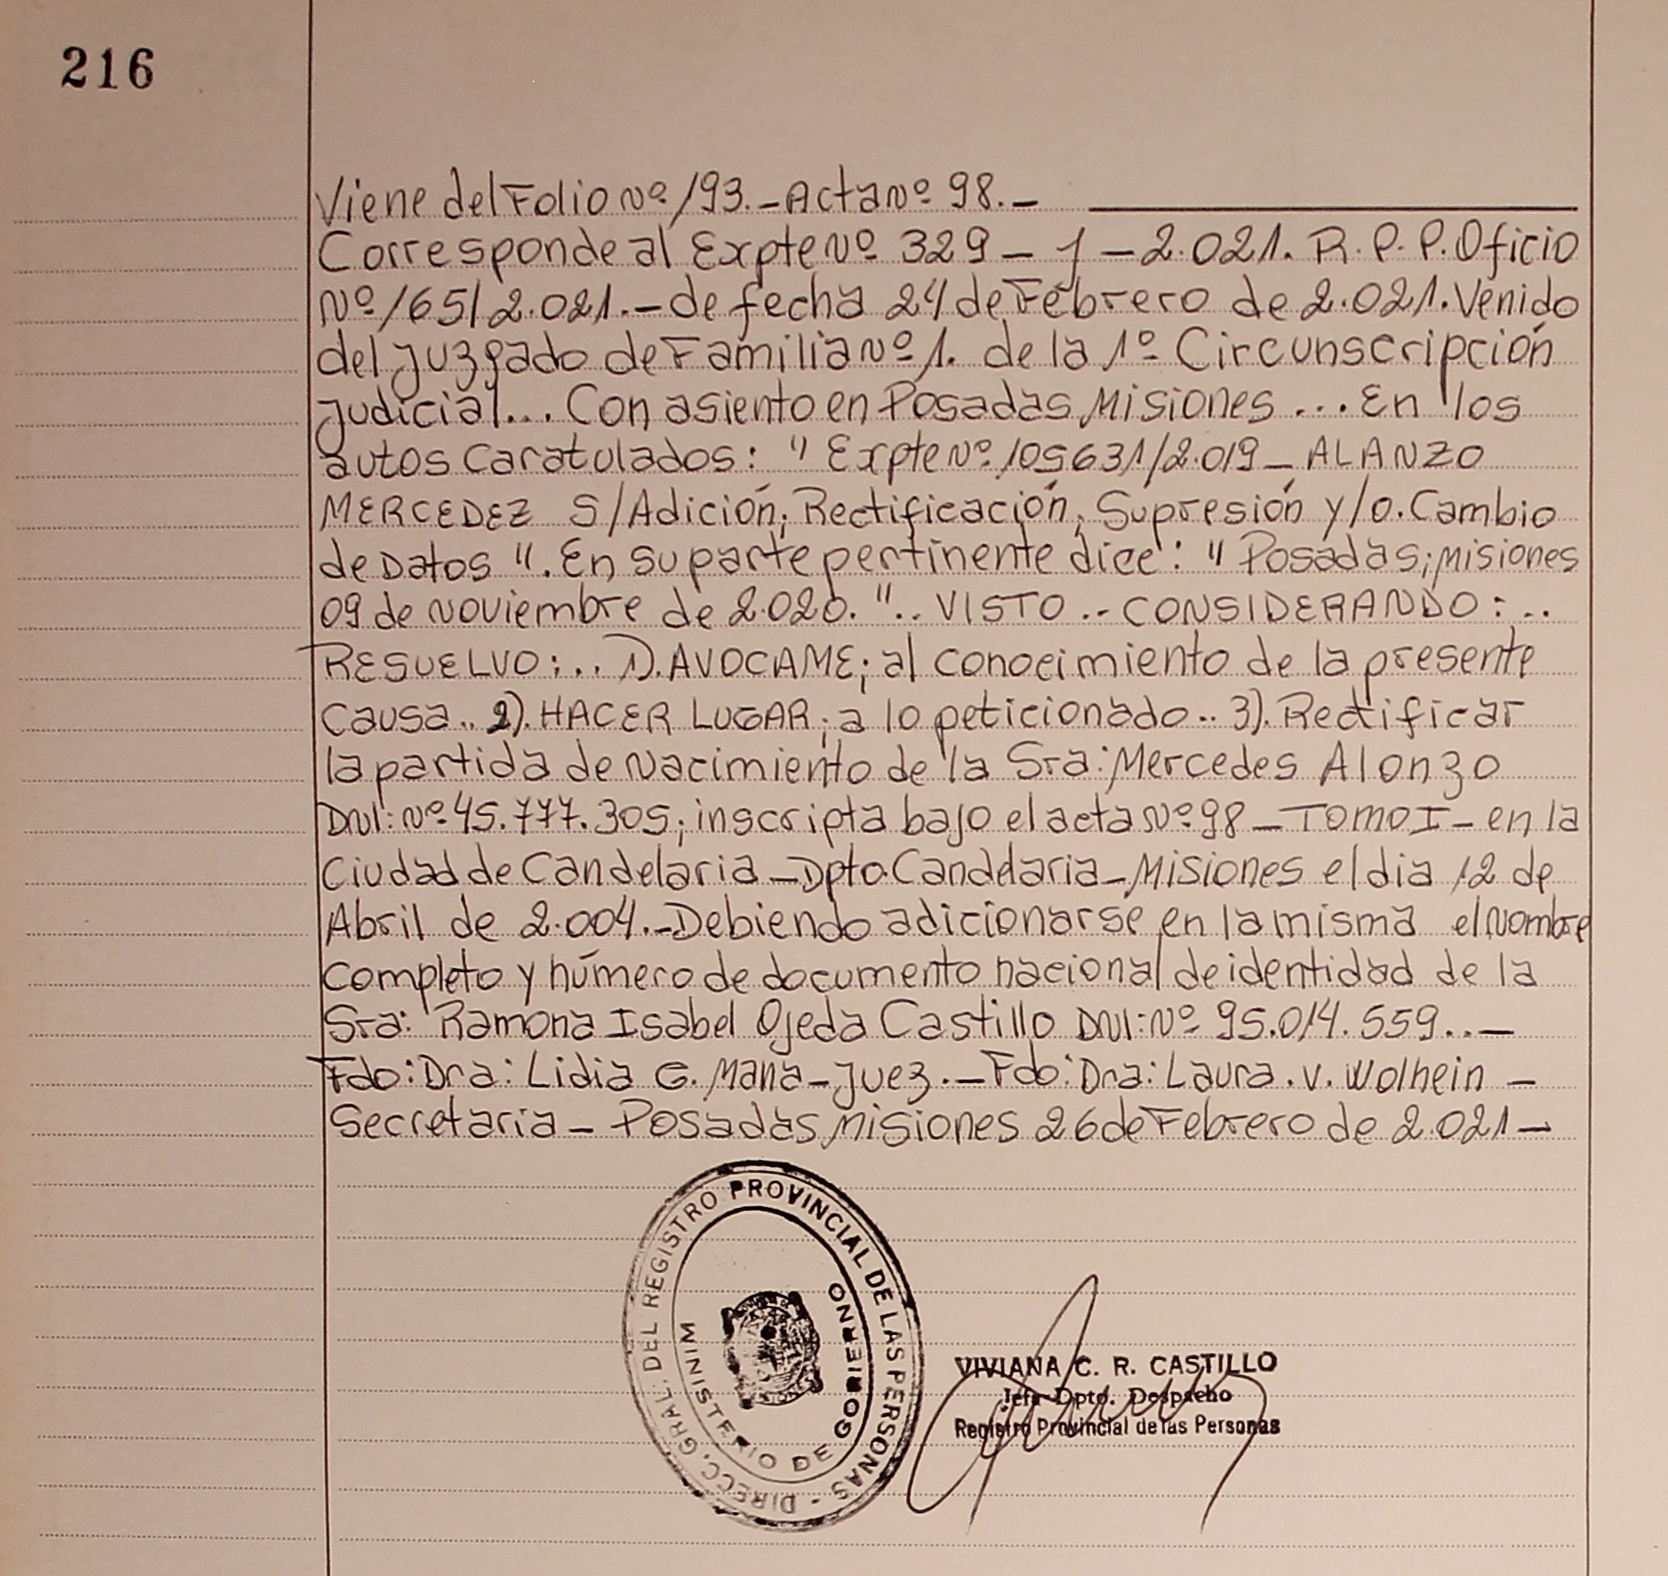 216
Viene del Folio Nº 193.- Acta Nº 98.-
Corresponde al Expte Nº 329 - J - 2.021. R. P. P. Oficio
Nº 165/2.021.- de fecha 24 de Febrero de 2.021. Venido
del Juzgado de Familia Nº 1. de la 1º Circunscripción
Judicial... Con asiento en Posadas, Misiones ... En los
autos Caratulados: " Expte Nº 105631/2.019 - ALANZO
MERCEDEZ S/Adición; Rectificación, Supresión y/o. Cambio
de Datos ". En su parte pertinente dice: " Posadas; Misiones
09 de Noviembre de 2.020. ".. VISTO .. CONSIDERANDO: ..
RESUELVO: .. 1). AVOCAME; al conocimiento de la presente
Causa .. 2). HACER LUGAR; a lo peticionado .. 3). Rectificar
la partida de Nacimiento de la Sra: Mercedes Alonzo
DNI: Nº 45.777.305; inscripta bajo el acta Nº 98 - TOMO I - en la
Ciudad de Candelaria - Dpto. Candelaria - Misiones el dia 12 de
Abril de 2.004.- Debiendo adicionarse en la misma el Nombre
Completo y número de documento nacional de identidad de la
Sra: Ramona Isabel Ojeda Castillo DNI: Nº 95.014.559..-
Fdo: Dra: Lidia G. Mana - Juez.- Fdo: Dra: Laura. V. Wolhein -
Secretaria - Posadas, Misiones 26 de Febrero de 2.021 -
DIRECC. GRAL. DEL REGISTRO PROVINCIAL DE LAS PERSONAS -
MINISTERIO DE GOBIERNO
VIVIANA C. R. CASTILLO
Jefa Dpto. Despacho
Registro Provincial de las Personas